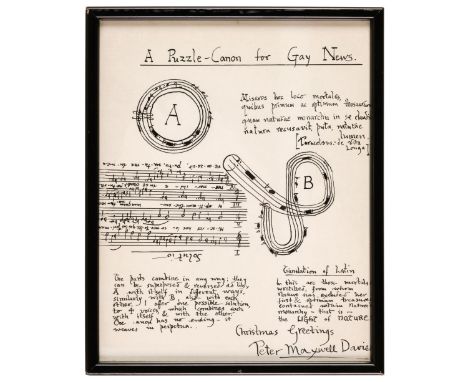 A Puzzle-Canon for Gay News.
A
Miseros hoc loco mortales,
quibus primum ac optimum thesaurum
quam naturae monarchia in se claudit
natura recusavit puta, naturae
lumen.
[Paracelsus: de Vita
Longa]
B
Solutio
The parts combine in any way; they
can be superposed & reversed ad lib,
A with itself in different ways,
similarly with B, also with each
other. I offer one possible solution
to 4 voices, which combines each
with itself & with the other.
The canon has no ending - it
weaves in perpetua.
Translation of Latin
In this are those mortals
wretched, from whom
Nature has secluded her
first & optimum treasure
contained within Nature's
monarchy - that is -
the LIGHT of NATURE
Christmas Greetings
Peter Maxwell Davies